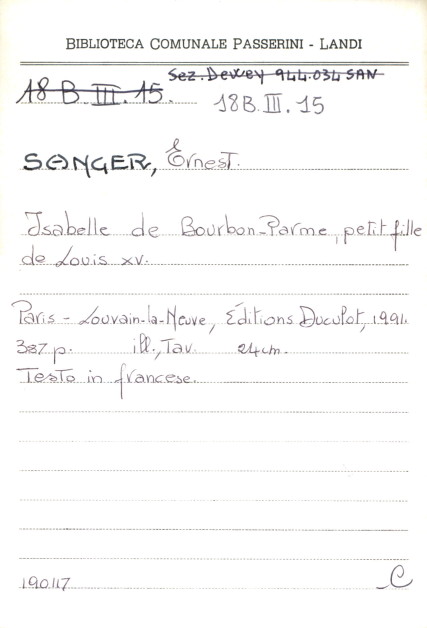 BIBLIOTECA COMUNALE PASSERINI - LANDI
Sez. Dewey 944.034 SAN
18 B III. 15.
18B. III. 15
SANGER, Ernest.
Isabelle de Bourbon-Parme, petit fille
de Louis XV.
Paris - Louvain-la-Neuve, Éditions Duculot, 1991.
387 p. ill., Tav. 24cm.
Testo in francese.
190117
C